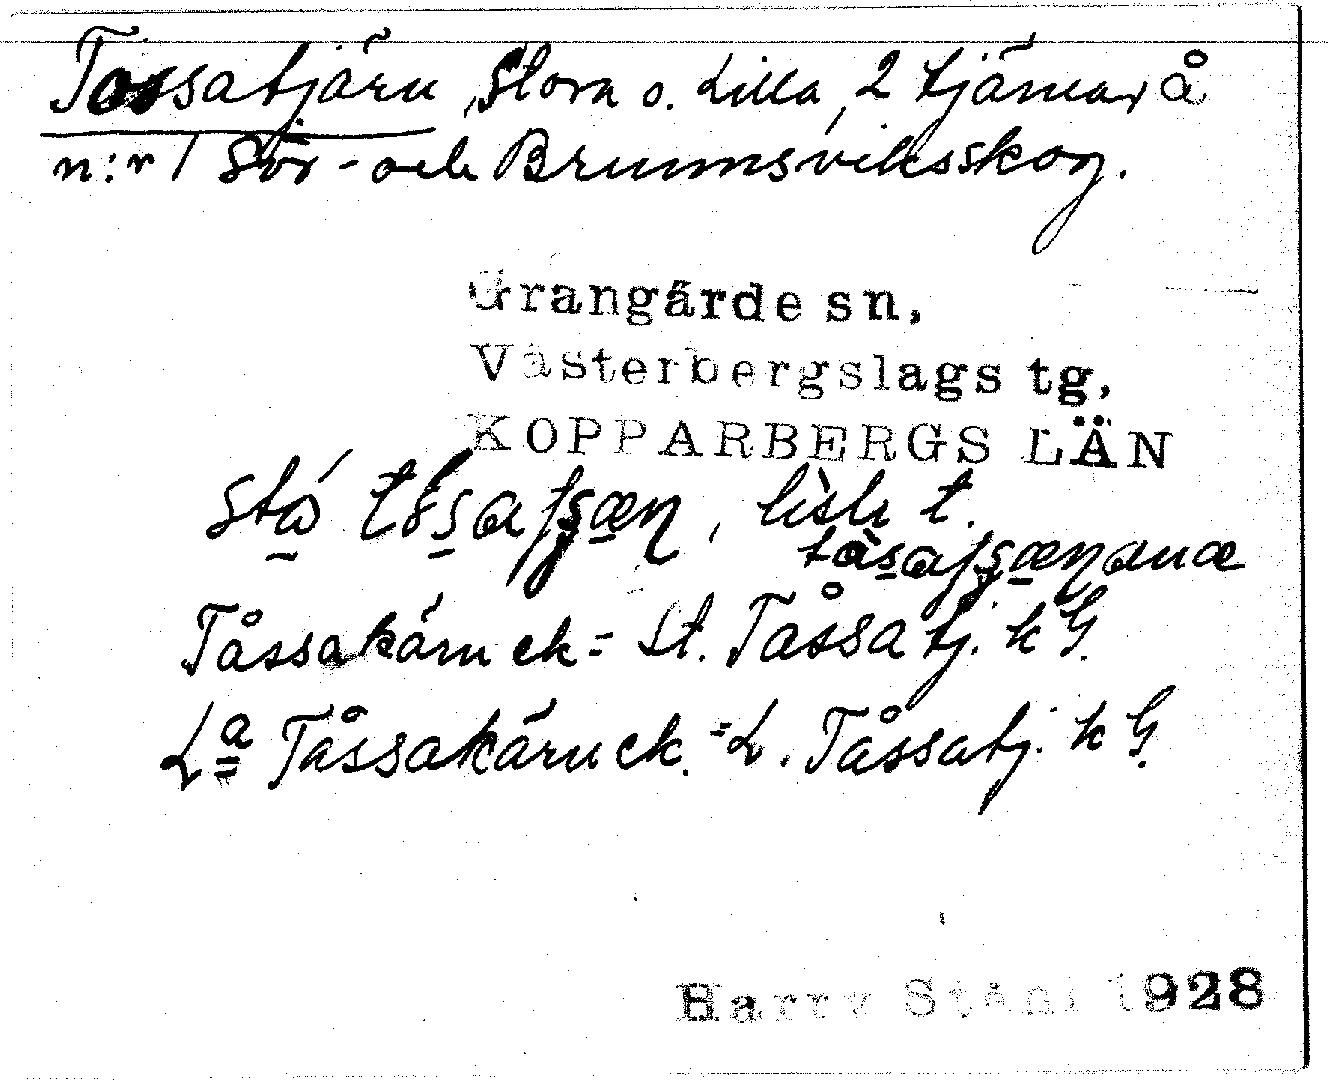 Tossatjärn, Stora o. Lilla, 2 tjärnar, å
n:r 1 Sör- och Brunnsviksskog.
Grangärde sn,
Västerbergslags tg,
KOPPARBERGS LÄN
lisḷr t.
Tåssakärn ek = St. Tåssatj. k G.
La Tåssakärn ek. = L. Tåssatj. k G.
Harry Ståhl 1928